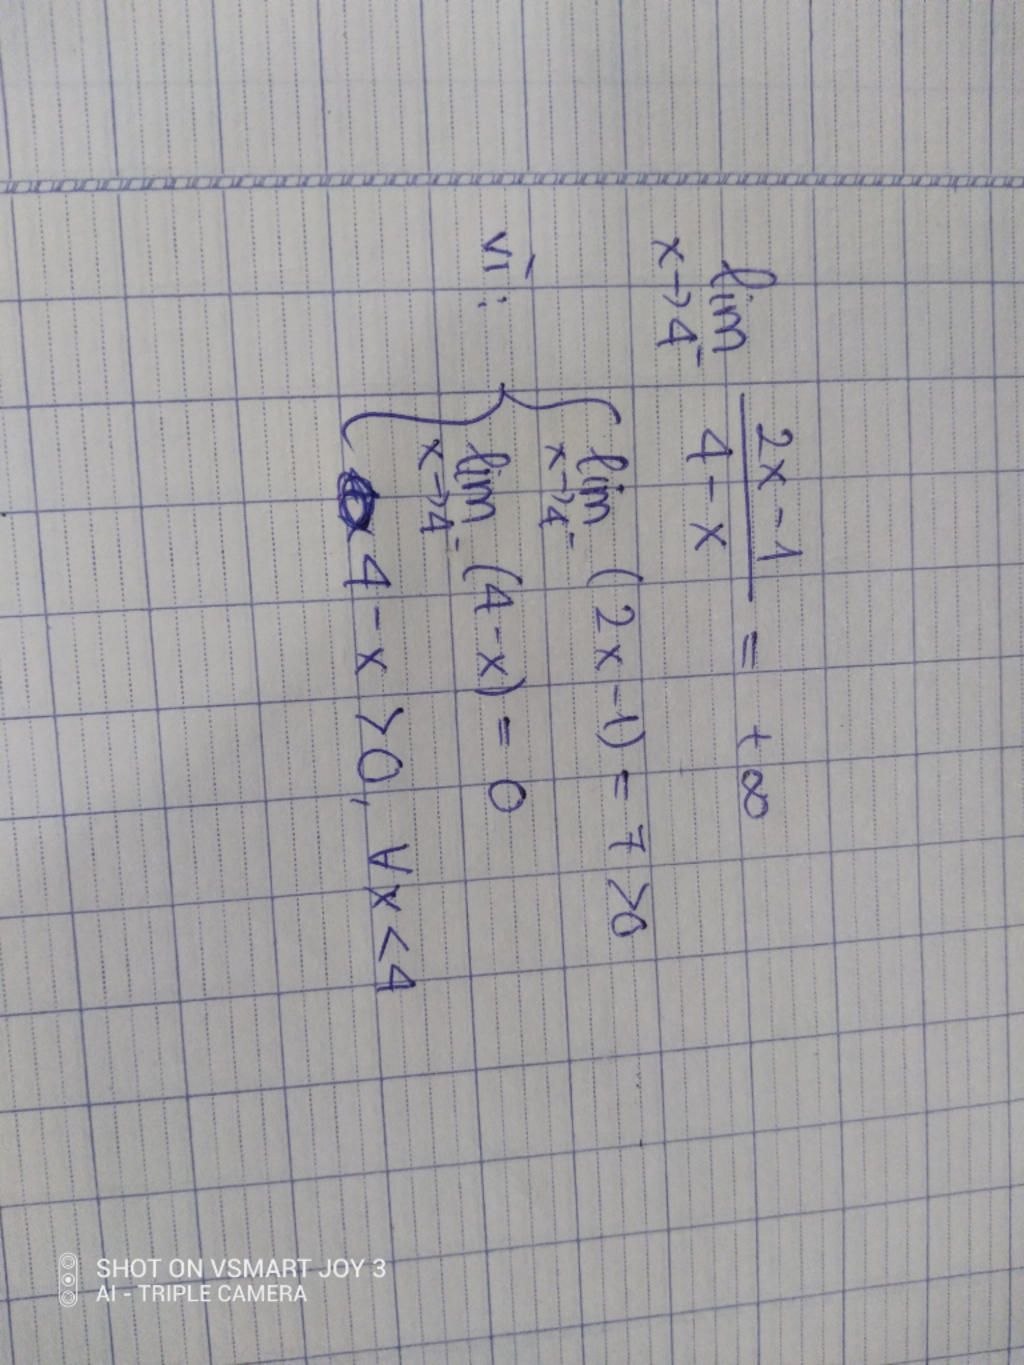 lim 2x - 1 / 4 - x = +∞
x→4⁻
vì: lim (2x - 1) = 7 > 0
x→4⁻
lim (4 - x) = 0
x→4⁻
4 - x > 0, ∀x < 4
SHOT ON VSMART JOY 3
AI - TRIPLE CAMERA